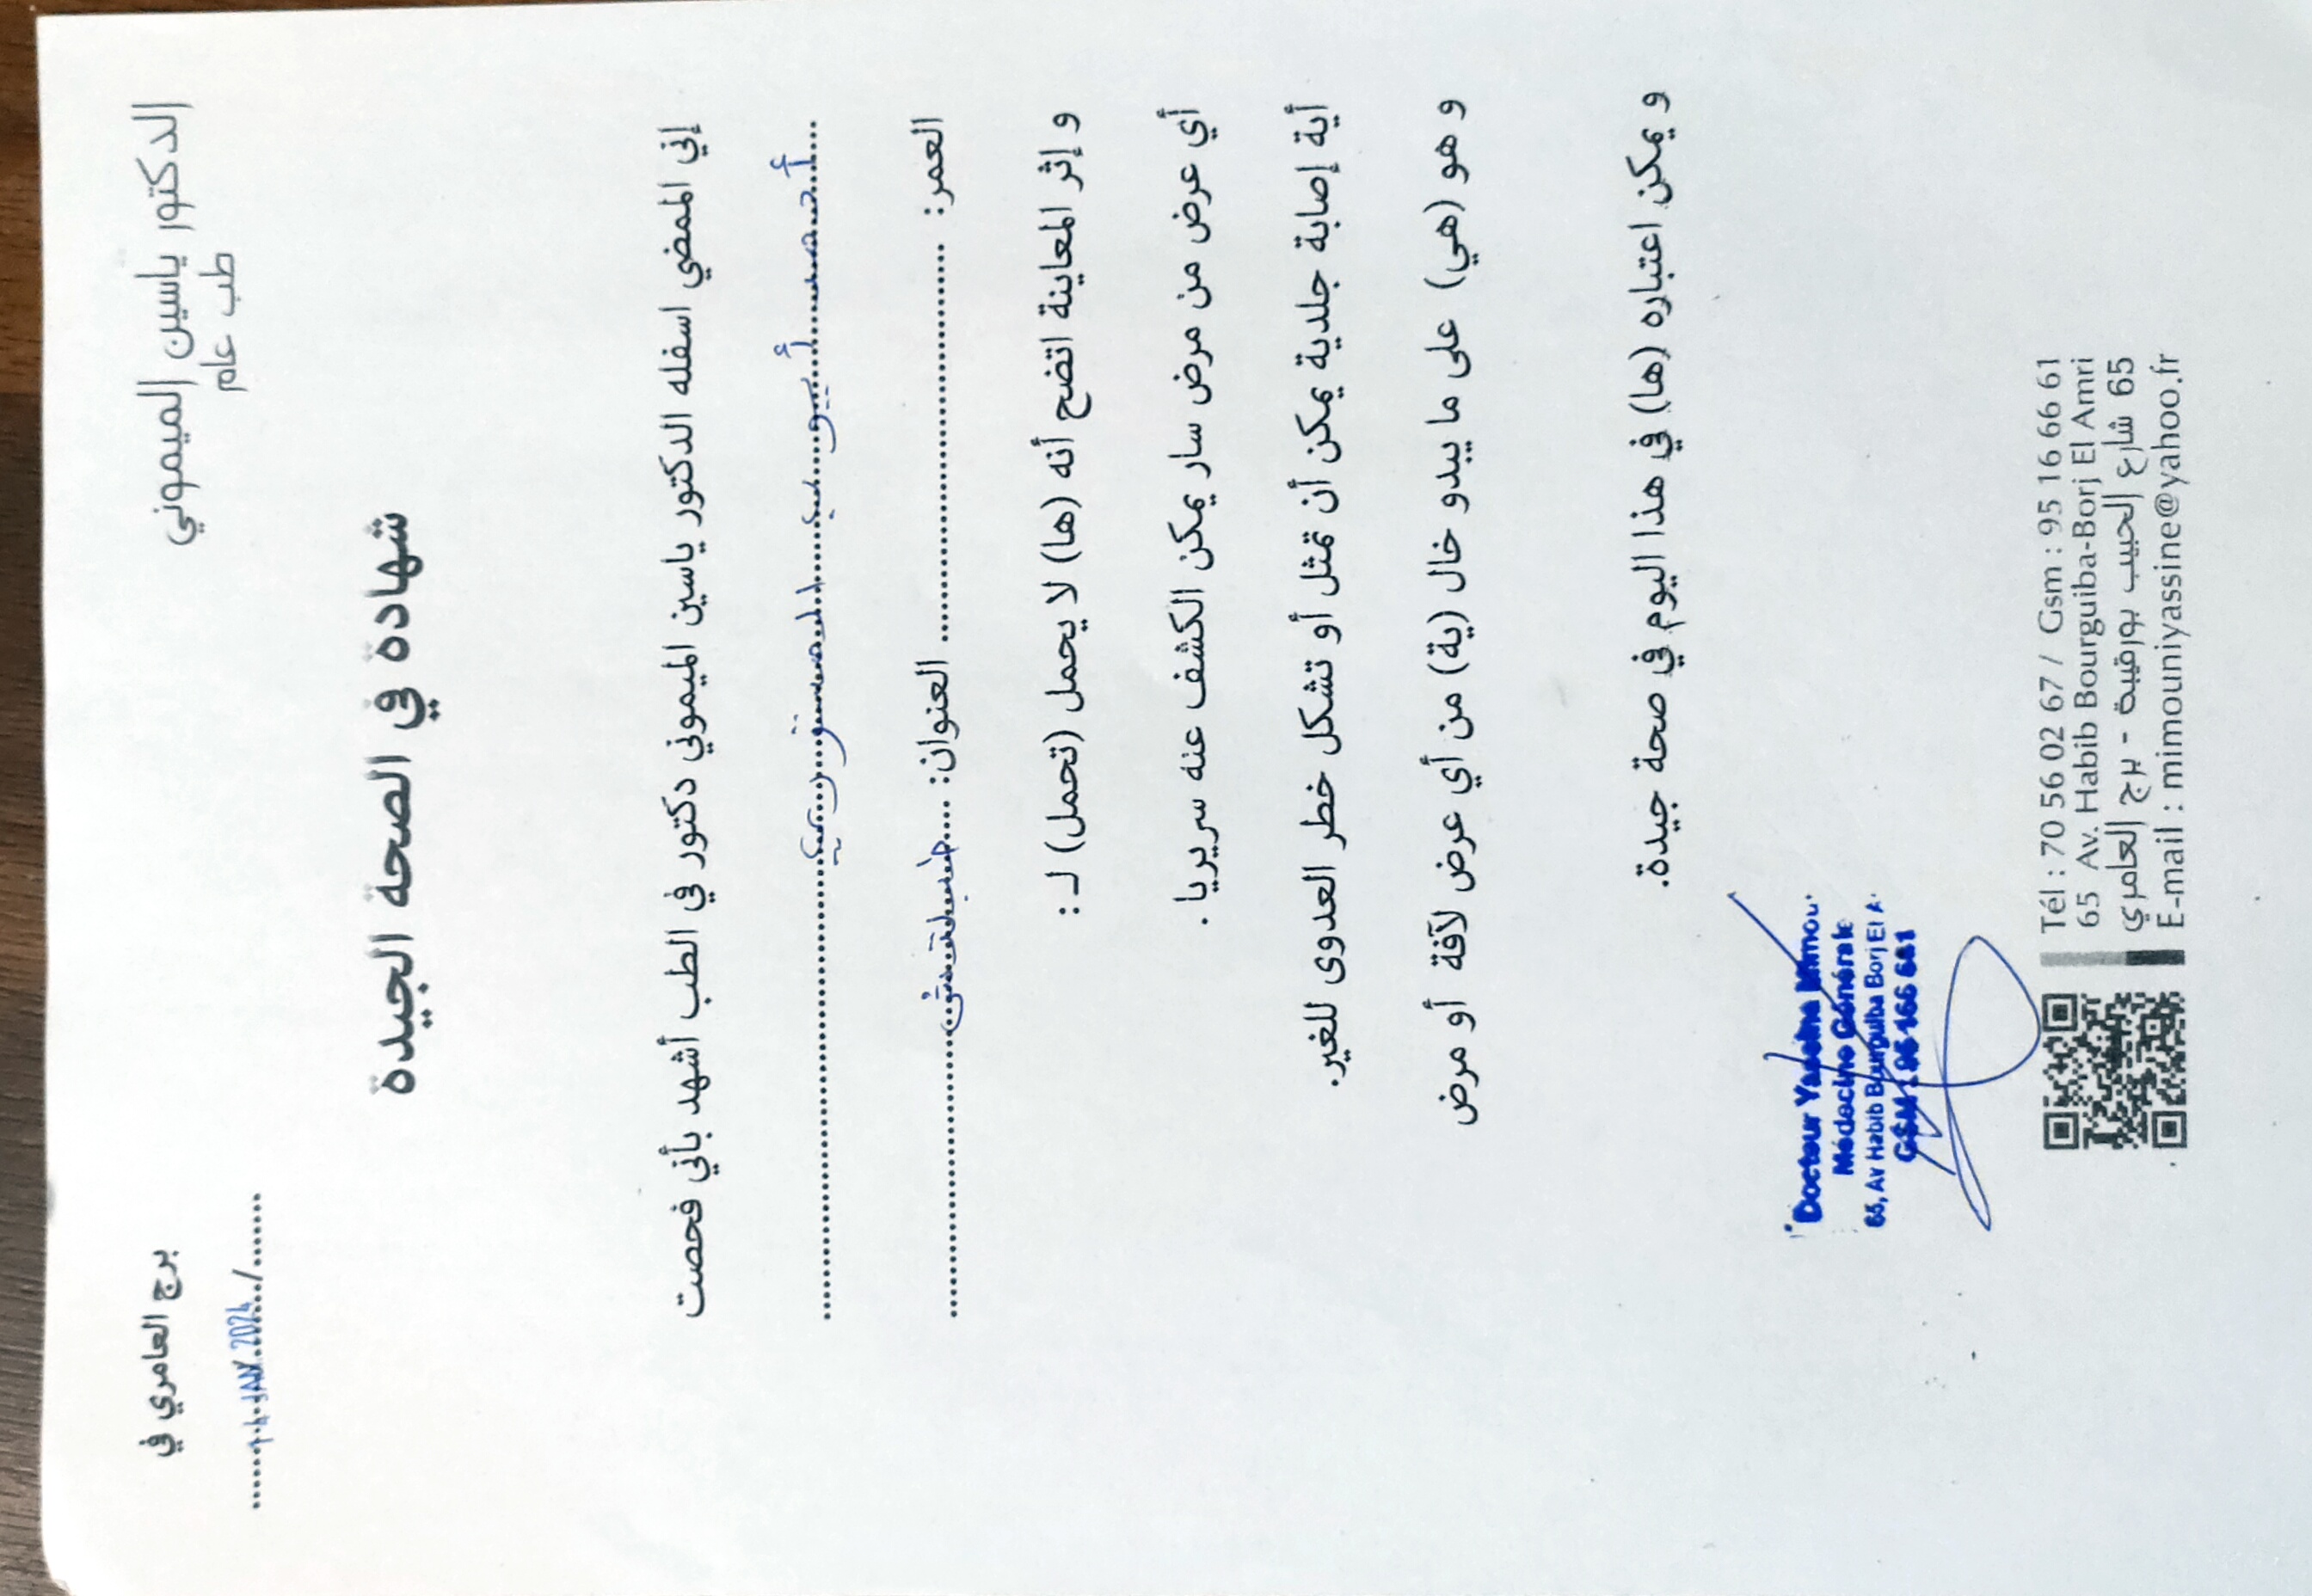 الدكتور ياسين الميموني
طب عام
برج العامري في
JAN 2024
شهادة في الصحة الجيدة
إني الممضي اسفله الدكتور ياسين الميموني دكتور في الطب أشهد بأني فحصت
أحمد أيوب
العمر: العنوان:
و إثر المعاينة اتضح أنه (ها) لا يحمل (تحمل) لـ :
أي عرض من مرض سار يمكن الكشف عنه سريريا .
أية إصابة جلدية يمكن أن تمثل أو تشكل خطر العدوى للغير.
و هو (هي) على ما يبدو خال (ية) من أي عرض لآفة أو مرض
و يمكن اعتباره (ها) في هذا اليوم في صحة جيدة.
Docteur Yassine Mimou
Médecine Générale
65, Av Habib Bourguiba Borj El A
GSM : 95 166 661
Tél : 70 56 02 67 / Gsm : 95 16 66 61
65 Av. Habib Bourguiba-Borj El Amri
65 شارع الحبيب بورقيبة - برج العامري
E-mail : mimouniyassine@yahoo.fr